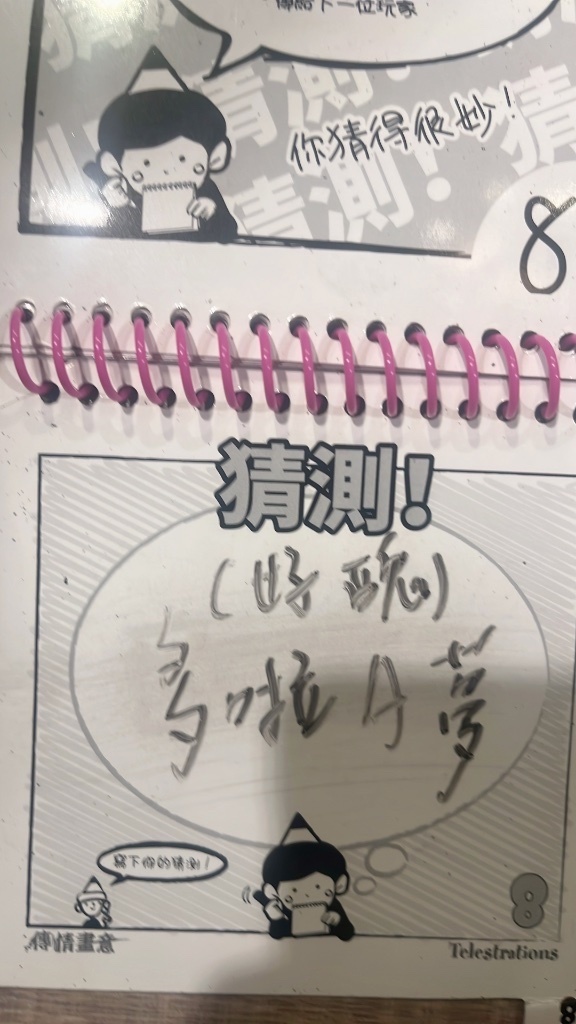 傳給下一位玩家
你猜得很妙！
8
猜測！
（好醜）
多啦A夢
寫下你的猜測！
8
傳情畫意
Telestrations
8